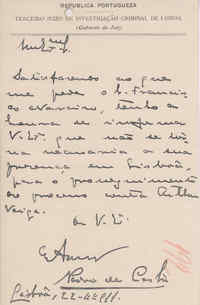 REPUBLICA PORTUGUEZA
TERCEIRO JUIZO DE INVESTIGAÇÃO CRIMINAL DE LISBOA
(Gabinete do Juiz)
Satisfazendo ao que
me pede o Sr. Francis
co Avarino, tenho a
honra de informar
V. Ex.ª que não se tór
na necessaria a sua
presença em Lisboa,
para o proseguimento
do processo contra Arthur
Veiga.
De V. Ex.ª
Pedro de Castro
Lisboa, 22-4-911.